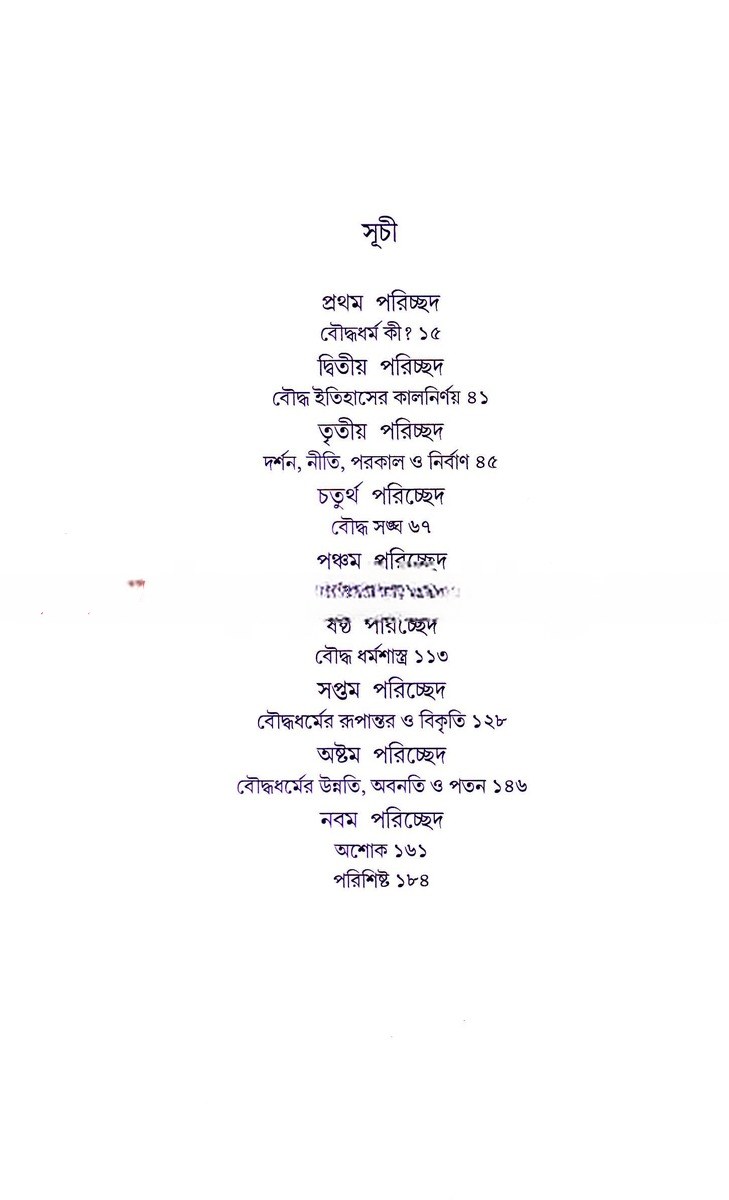 সূচী
প্রথম পরিচ্ছদ
বৌদ্ধধর্ম কী? ১৫
দ্বিতীয় পরিচ্ছদ
বৌদ্ধ ইতিহাসের কালনির্ণয় ৪১
তৃতীয় পরিচ্ছদ
দর্শন, নীতি, পরকাল ও নির্বাণ ৪৫
চতুর্থ পরিচ্ছেদ
বৌদ্ধ সঙ্ঘ ৬৭
পঞ্চম পরিচ্ছেদ
ষষ্ঠ পরিচ্ছেদ
বৌদ্ধ ধর্মশাস্ত্র ১১৩
সপ্তম পরিচ্ছেদ
বৌদ্ধধর্মের রূপান্তর ও বিকৃতি ১২৮
অষ্টম পরিচ্ছেদ
বৌদ্ধধর্মের উন্নতি, অবনতি ও পতন ১৪৬
নবম পরিচ্ছেদ
অশোক ১৬১
পরিশিষ্ট ১৮৪